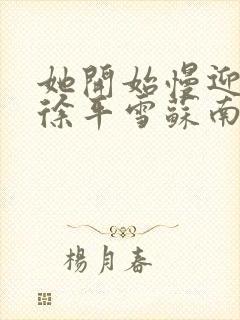 她開始慢迎
徐平雪蘇南
楊月春